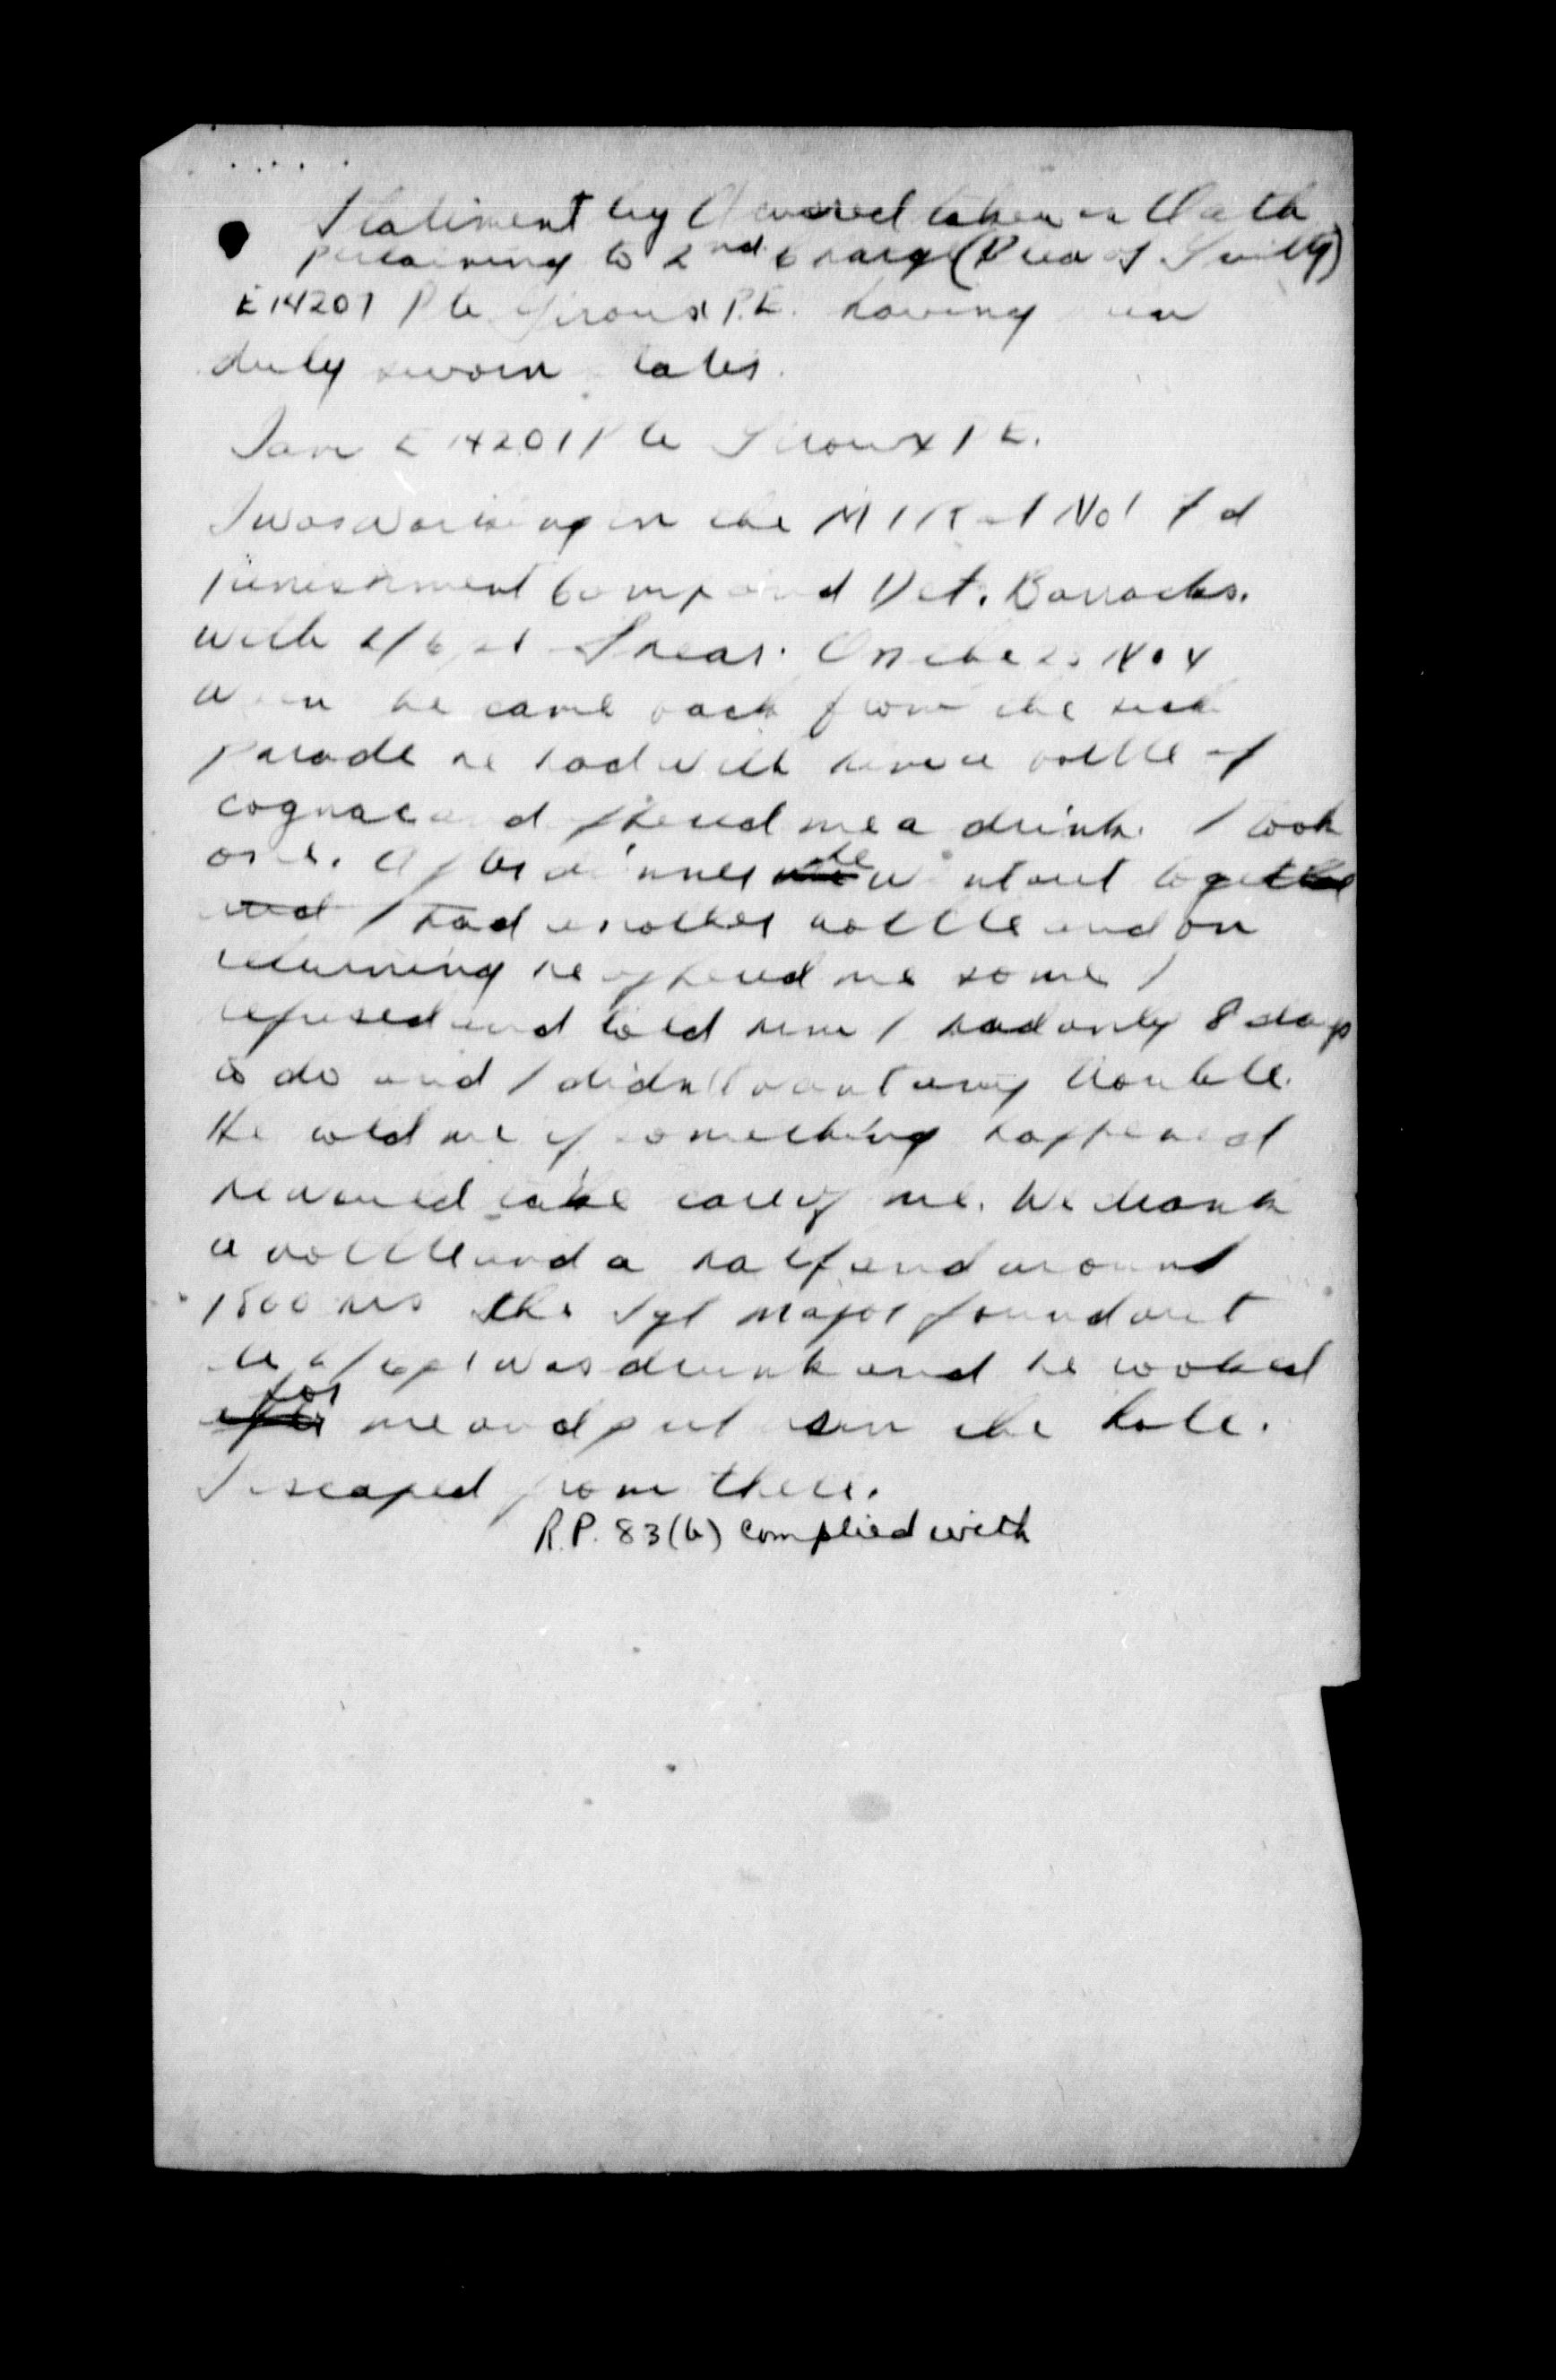 Statement by Accused taken on Oath
pertaining to 2nd Charge (Plea of Guilty)
E14207 Pte Giroux P.E. having been
duly sworn states.
I am E14207 Pte Giroux P.E.
I was working in the M I R at No 1 Fd
punishment Camp and Det. Barracks.
with L/Cpl Shear. On the Nov
when he came back from the sick
parade he had with him a bottle of
cognac and offered me a drink. I took
one. After dinner he went out together
and I had another bottle and on
returning he offered me some I
refused and told him I had only 8 days
to do and I didn't want any trouble.
He told me if something happened
he would take care of me. We drank
a bottle and a half and around
1800 hrs the Sgt Major found out
the L/Cpl was drunk and he looked
for me and put us in the hole.
I escaped from there.
R.P. 83(b) complied with